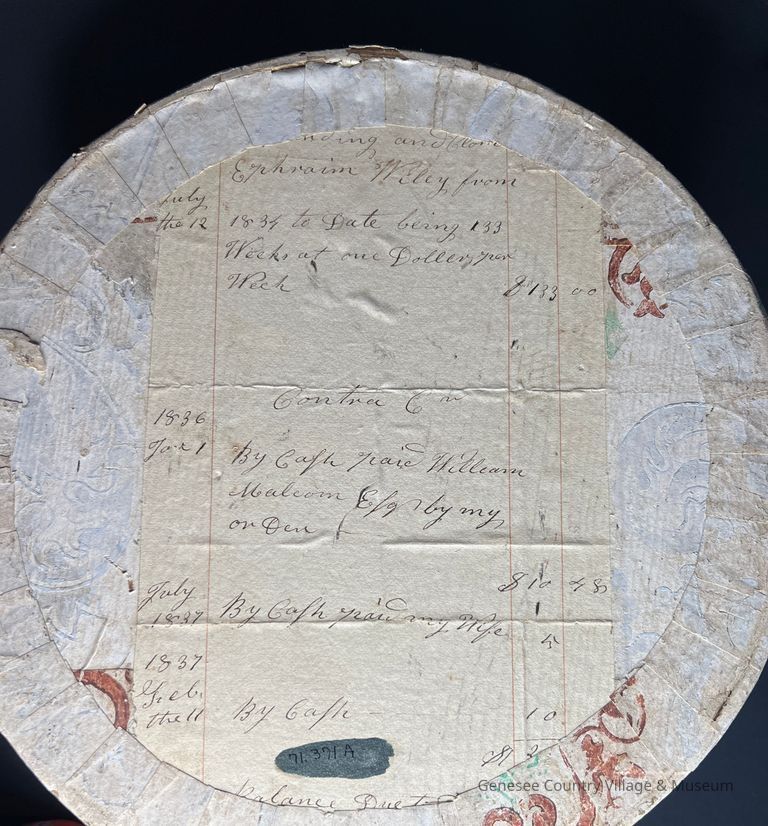 Ephraim Wiley from
July
the 12 1834 to Date being 133
Weeks at one Doller per
Week $133 00
Contra Cr
1836
Jan 1 By Cash paid William
Malcom Esqr by my
or Den
$10 48
July
1837 By Cash paid my Wife
5
1837
Feb
the 11 By Cash 10
71.371A
Balance Due to
Genesee Country Village & Museum